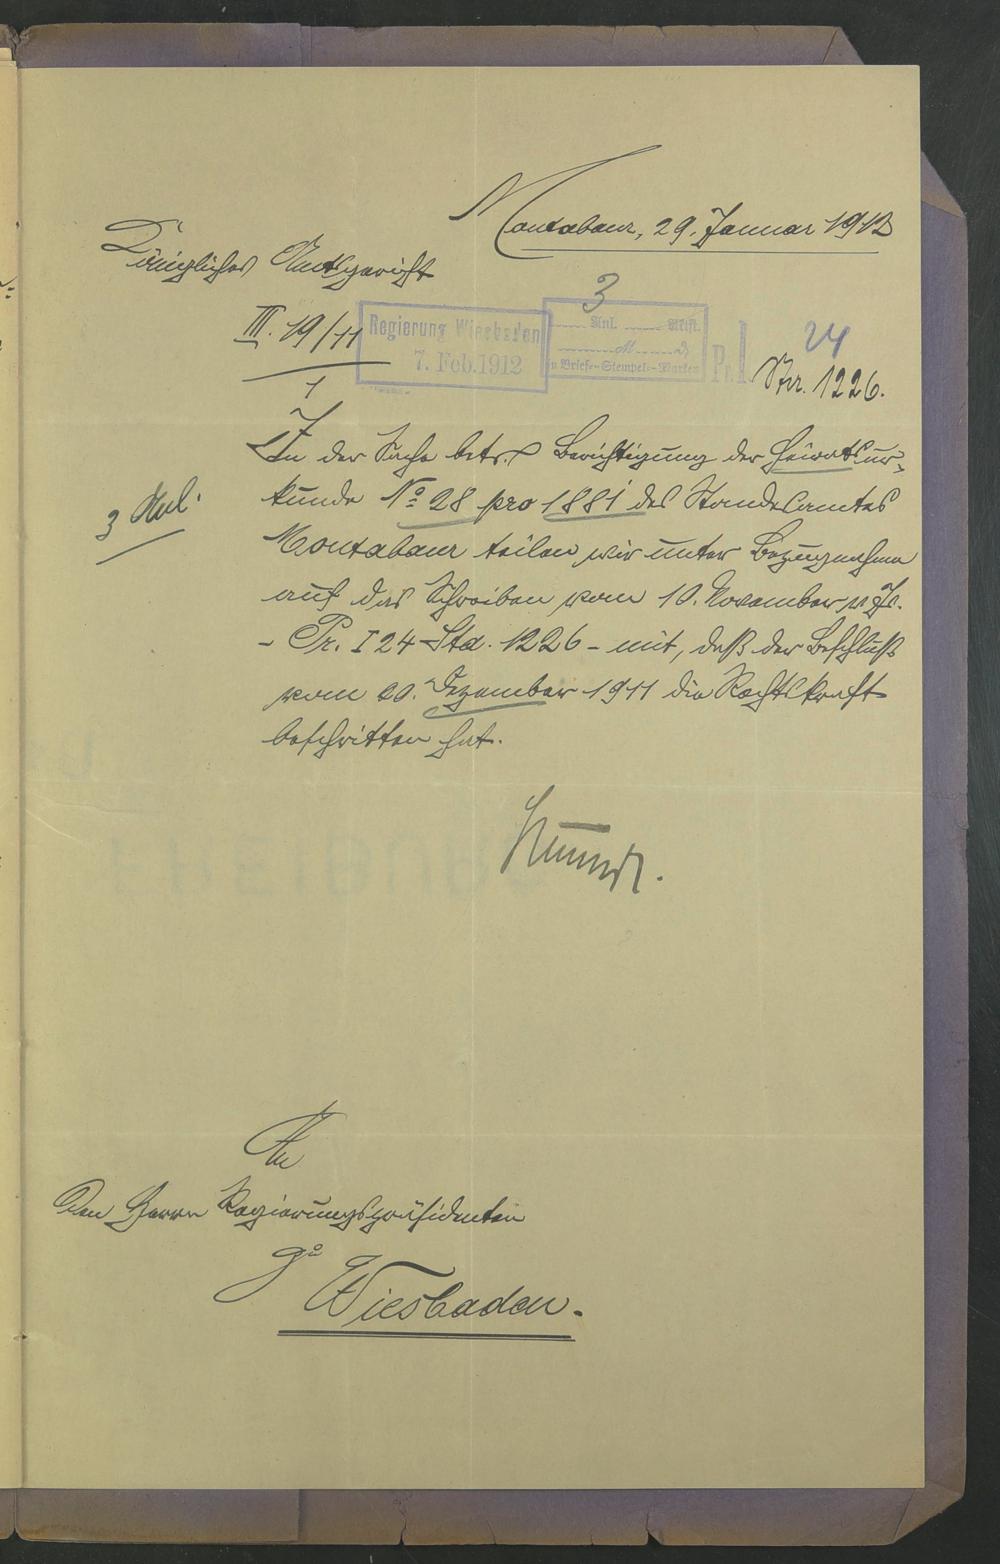 Montabaur, 29. Januar 1912
Königliches Amtsgericht
III. 19/11
1
Regierung Wiesbaden
7. Feb. 1912
3
Anl. Aktst.
M
in Briefe-Stempel-Marken
Pr. I 24
Nr. 1226.
In der Sache betr. Berichtigung der Heiratsur-
3 Anl.
kunde No 28 pro 1881 des Standesamtes
Montabaur teilen wir unter Bezugnahme
auf das Schreiben vom 10. November v. Js.
- Pr. I 24 Sta. 1226 - mit, daß der Beschluß
vom 20. Dezember 1911 die Rechtskraft
beschritten hat.
An
den Herrn Regierungspräsidenten
zu
Wiesbaden.